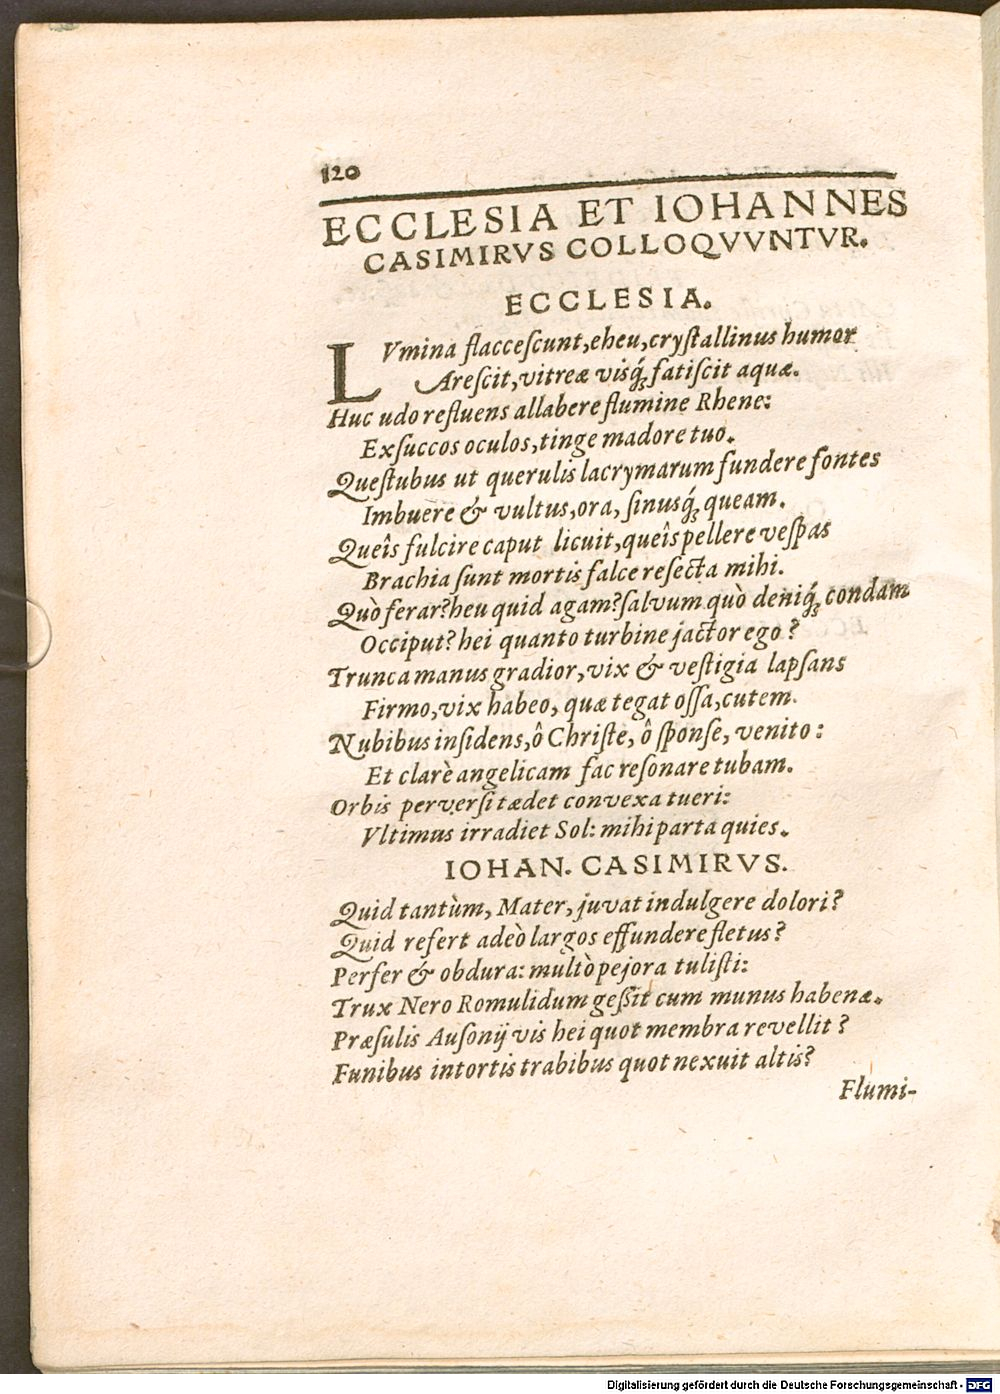 120
ECCLESIA ET IOHANNES
CASIMIRVS COLLOQVVNTVR.
ECCLESIA.
LVmina flacceſcunt,eheu,cryſtallinus humor
Areſcit,vitreæ visq́; fatiſcit aquæ.
Huc udo refluens allabere flumine Rhene:
Exſuccos oculos,tinge madore tuo.
Queſtubus ut querulis lacrymarum fundere fontes
Imbuere & vultus,ora, ſinusq́; queam.
Queîs fulcire caput licuit,queîs pellere veſpas
Brachia ſunt mortis falce reſecta mihi.
Quò ferar?heu quid agam?ſalvum quò deniq́; condam
Occiput? hei quanto turbine jactor ego?
Trunca manus gradior,vix & veſtigia lapſans
Firmo,vix habeo, quæ tegat oſſa,cutem.
Nubibus inſidens,ô Chriſte, ô ſponſe, venito:
Et clarè angelicam fac reſonare tubam.
Orbis perverſi tædet convexa tueri:
Vltimus irradiet Sol: mihi parta quies.
IOHAN. CASIMIRVS.
Quid tantùm, Mater, juvat indulgere dolori?
Quid refert adeò largos effundere fletus?
Perfer & obdura: multò pejora tuliſti:
Trux Nero Romulidum geſſit cum munus habenæ.
Præſulis Auſonij vis hei quot membra revellit?
Funibus intortis trabibus quot nexuit altis?
Flumi-
Digitalisierung gefördert durch die Deutsche Forschungsgemeinschaft - DFG